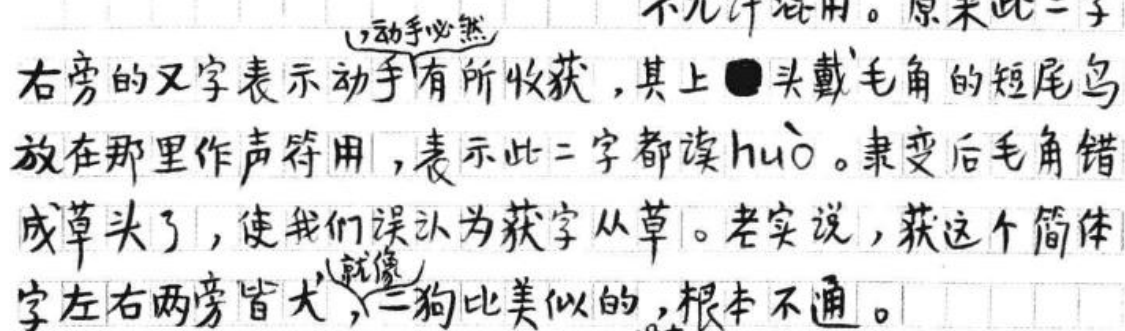 不允许混用。原来此二字
，动手必然
右旁的又字表示动手有所收获，其上头戴毛角的短尾鸟
放在那里作声符用，表示此二字都读huò。隶变后毛角错
成草头了，使我们误认为获字从草。老实说，获这个简体
，就像
字左右两旁皆犬，二狗比美似的，根本不通。